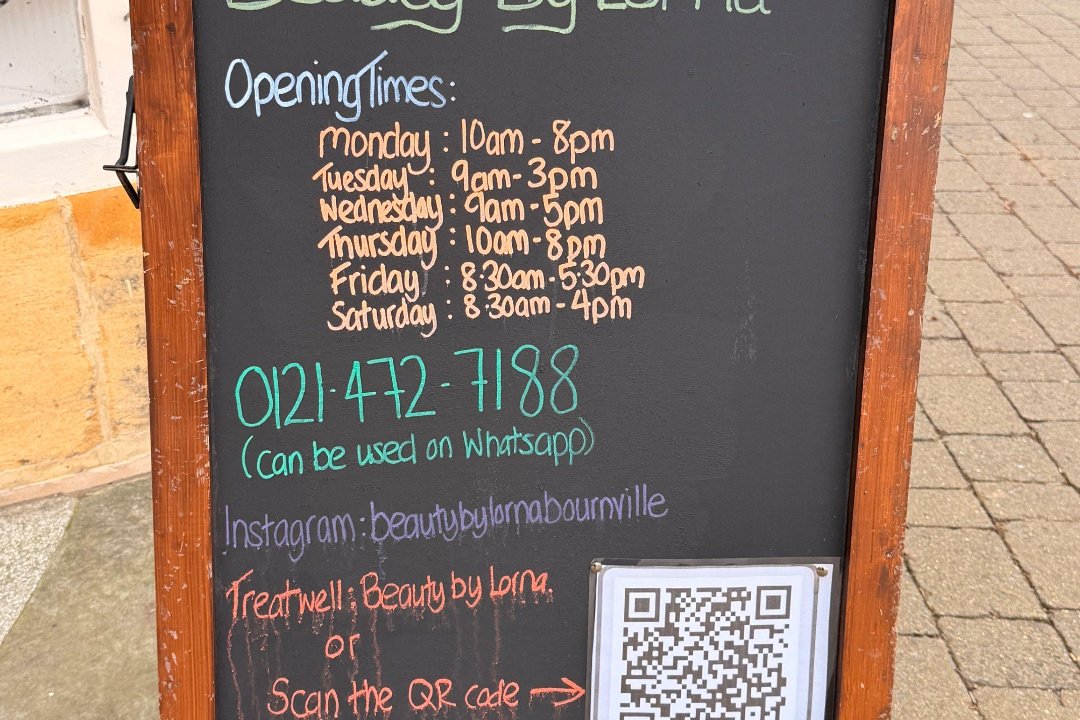 Beauty By Lorna
Opening Times:
Monday : 10am - 8pm
Tuesday : 9am - 3pm
Wednesday : 9am - 5pm
Thursday : 10am - 8pm
Friday : 8.30am - 5.30pm
Saturday : 8.30am - 4pm
0121-472-7188
(can be used on Whatsapp)
Instagram: beautybylornabournville
Treatwell: Beauty by Lorna.
or
Scan the QR code →